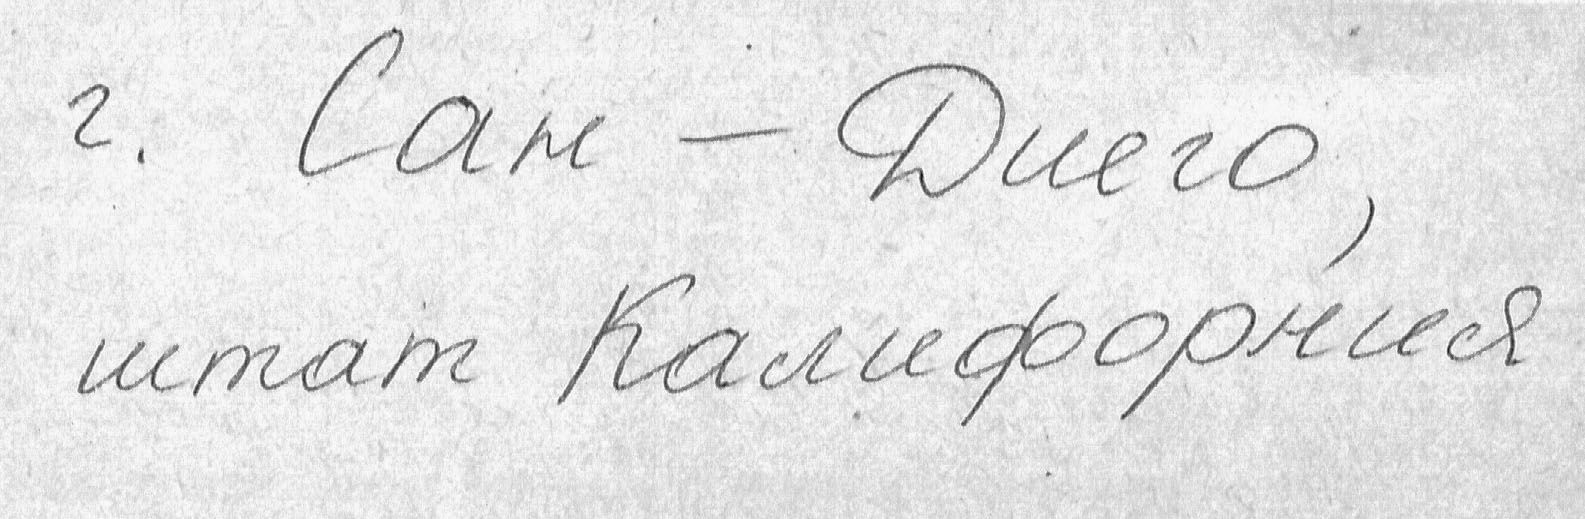 г. Сан - Диего,
штат Калифорния